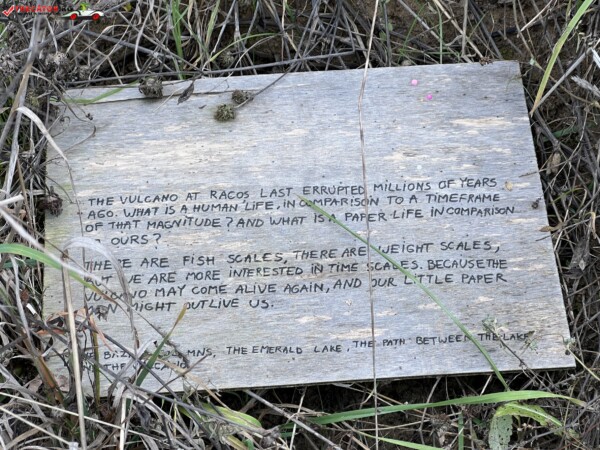 THE VULCANO AT RACOS LAST ERRUPTED MILLIONS OF YEARS
AGO. WHAT IS A HUMAN LIFE, IN COMPARISON TO A TIMEFRAME
OF THAT MAGNITUDE? AND WHAT IS A PAPER LIFE IN COMPARISON
OURS?
THERE ARE FISH SCALES, THERE ARE WEIGHT SCALES,
BUT WE ARE MORE INTERESTED IN TIME SCALES. BECAUSE THE
VULCANO MAY COME ALIVE AGAIN, AND OUR LITTLE PAPER
MAN MIGHT OUTLIVE US.
THE EMERALD LAKE, THE PATH BETWEEN THE LAKE
AND THE